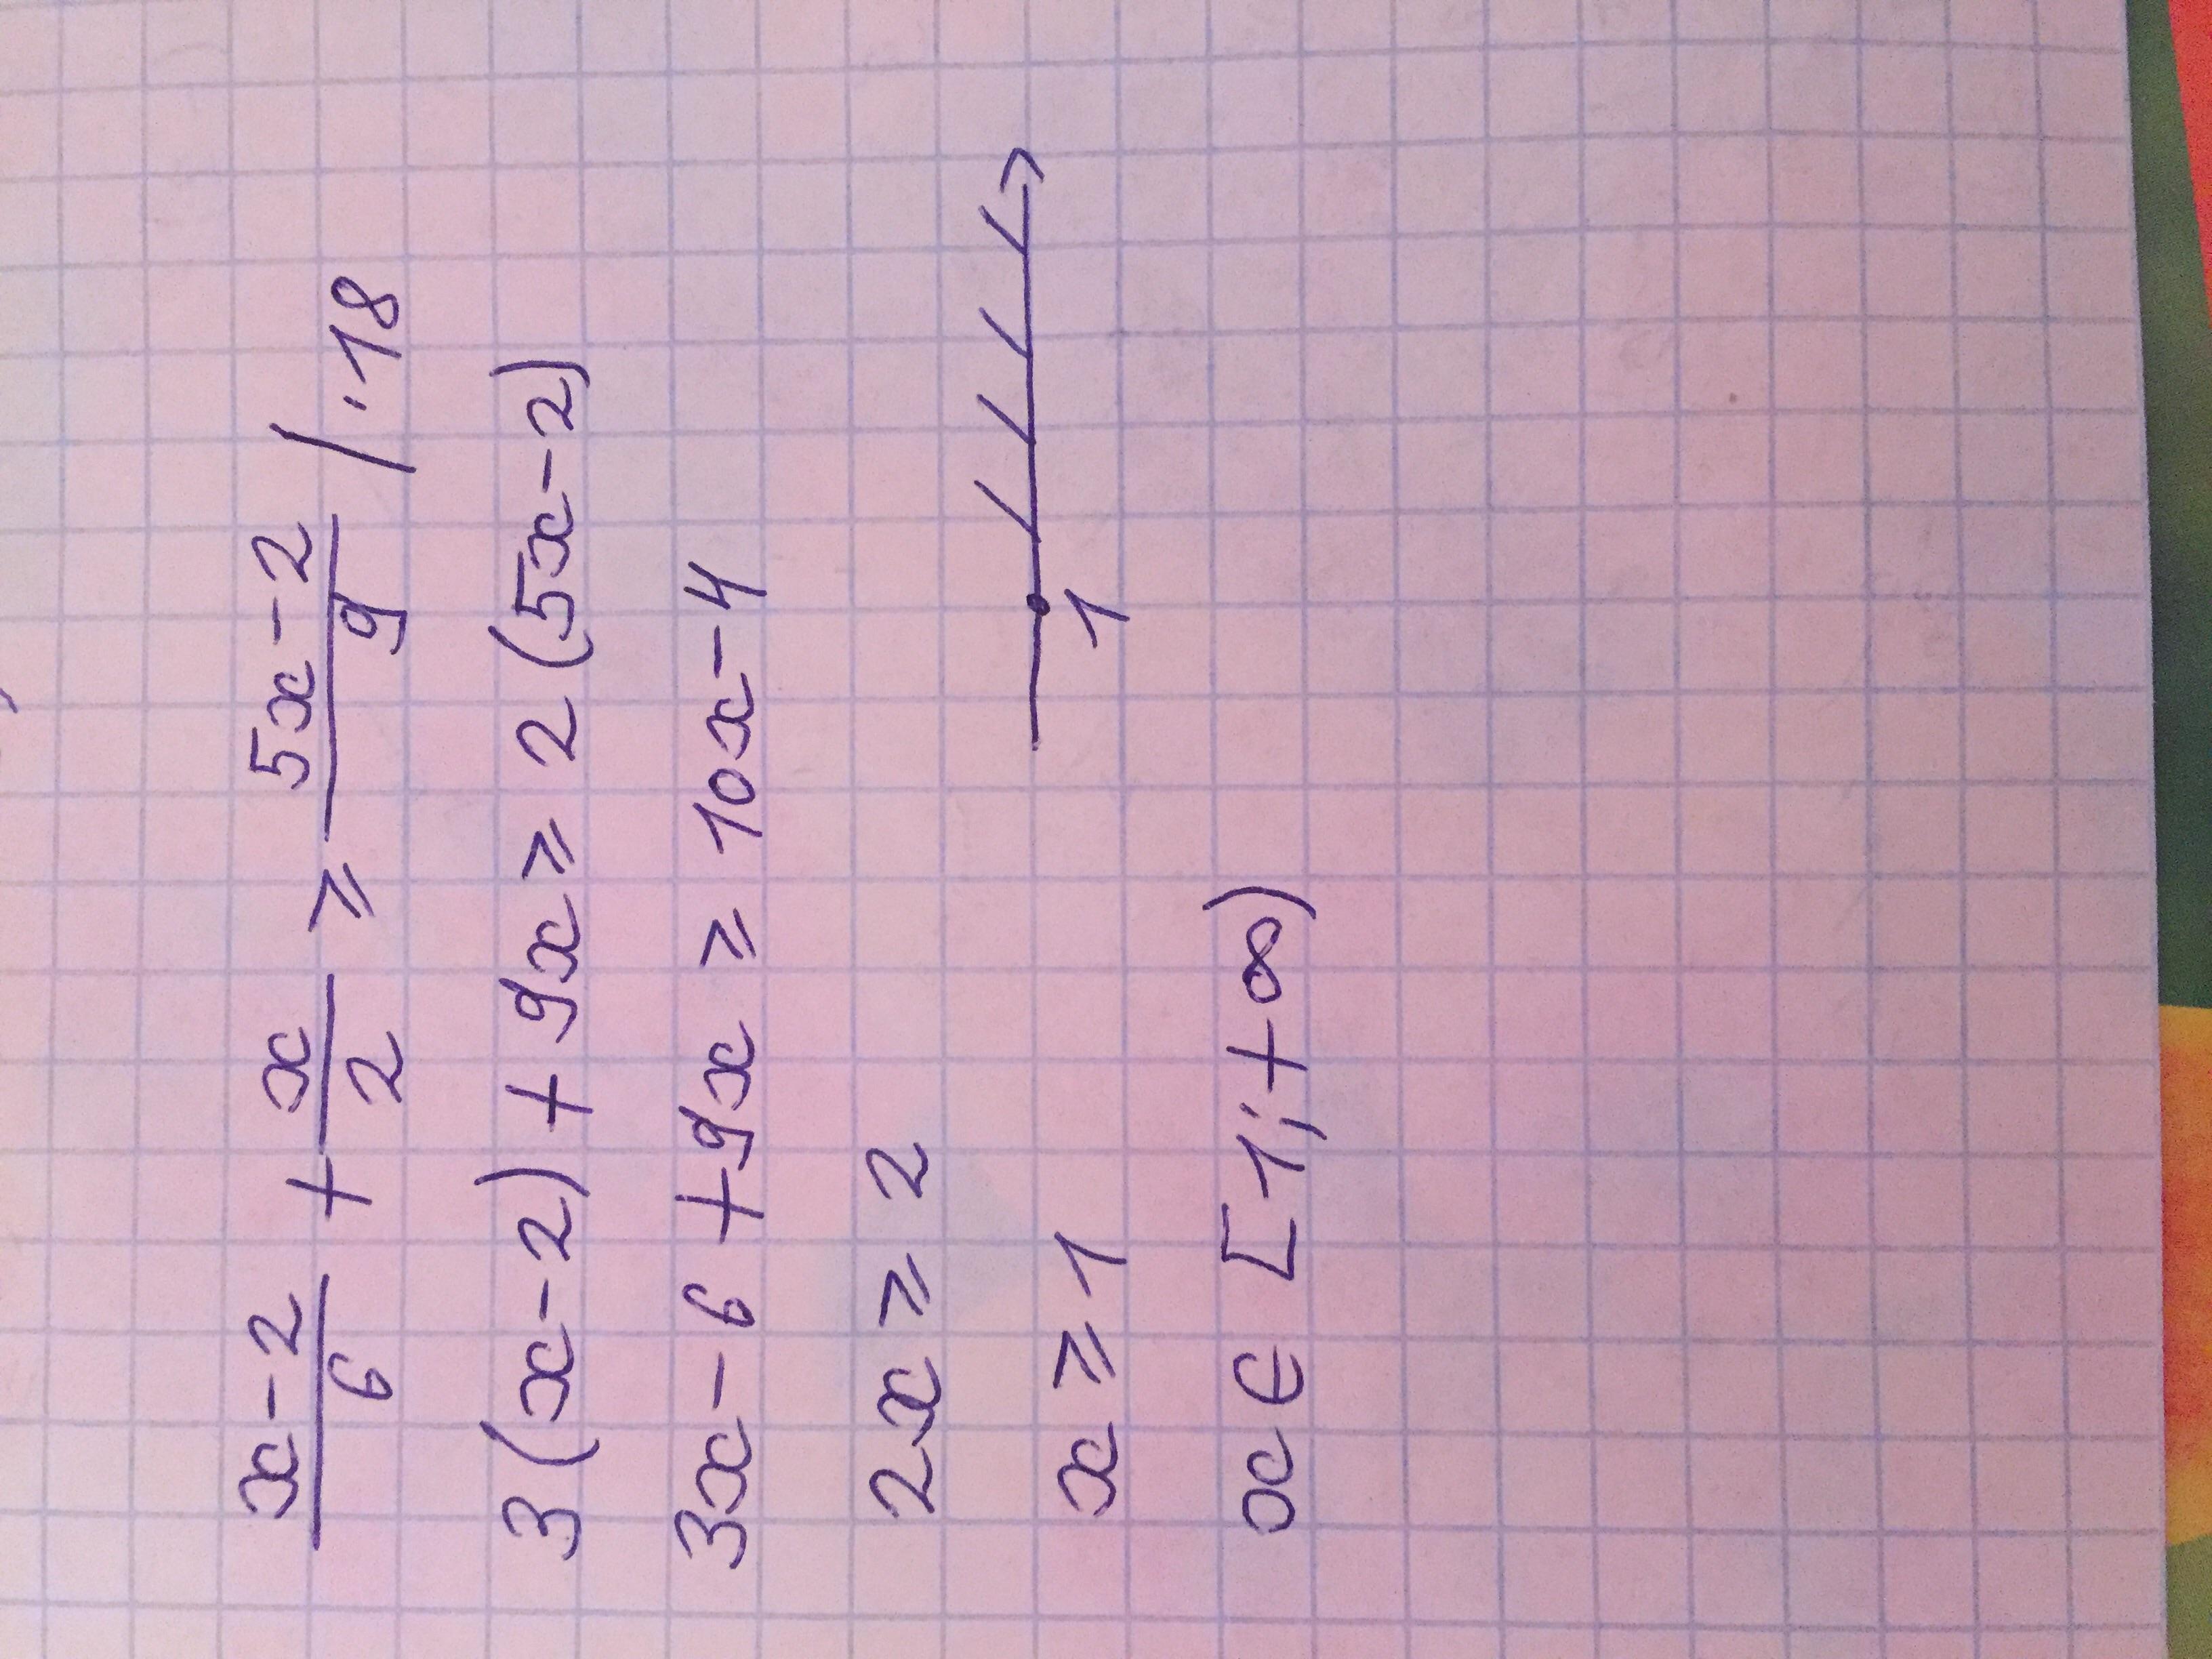 x-2/6 + x/2 ⩾ 5x-2/9 /·18
3(x-2)+9x⩾2(5x-2)
3x-6+9x⩾10x-4
2x⩾2
x⩾1
1
x∈[1;+∞)